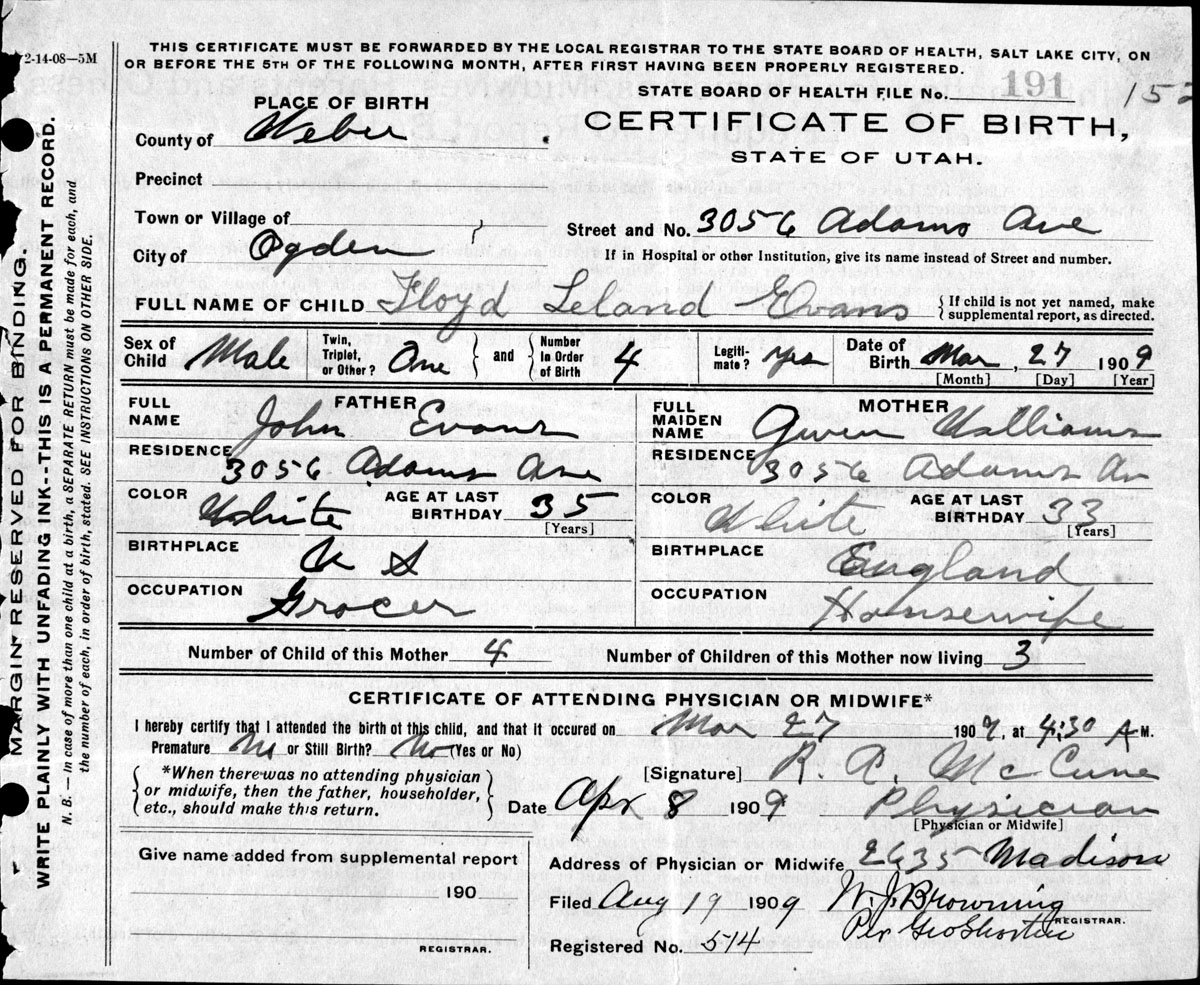 2-14-08—5M
THIS CERTIFICATE MUST BE FORWARDED BY THE LOCAL REGISTRAR TO THE STATE BOARD OF HEALTH, SALT LAKE CITY, ON
OR BEFORE THE 5TH OF THE FOLLOWING MONTH, AFTER FIRST HAVING BEEN PROPERLY REGISTERED.
STATE BOARD OF HEALTH FILE No. 191 152
PLACE OF BIRTH
CERTIFICATE OF BIRTH,
STATE OF UTAH.
County of Weber
Precinct
Town or Village of
Street and No. 3056 Adams Ave
City of Ogden
If in Hospital or other Institution, give its name instead of Street and number.
FULL NAME OF CHILD Floyd Leland Evans { If child is not yet named, make
supplemental report, as directed.
Sex of Child Male Twin, Triplet, or Other? One } and { Number In Order of Birth 4 Legiti-mate? Yes Date of Birth Mar, 27 1909
[Month] [Day] [Year]
FATHER
FULL NAME John Evans
RESIDENCE 3056 Adams Ave
COLOR White AGE AT LAST BIRTHDAY 35
[Years]
BIRTHPLACE U S
OCCUPATION Grocer
MOTHER
FULL MAIDEN NAME Gwen Williams
RESIDENCE 3056 Adams Av
COLOR White AGE AT LAST BIRTHDAY 33
[Years]
BIRTHPLACE England
OCCUPATION Housewife
Number of Child of this Mother 4 Number of Children of this Mother now living 3
CERTIFICATE OF ATTENDING PHYSICIAN OR MIDWIFE*
I hereby certify that I attended the birth of this child, and that it occured on Mar 27 1909, at 4:30 A M.
Premature No or Still Birth? No (Yes or No)
{ *When there was no attending physician
or midwife, then the father, householder,
etc., should make this return. }
[Signature] R. A. McCune
Date Apr 8 1909 Physician
[Physician or Midwife]
Give name added from supplemental report
190
REGISTRAR.
Address of Physician or Midwife 2635 Madison
Filed Aug 19 1909 W. J. Browning
REGISTRAR.
Per Geo
Registered No. 514
MARGIN RESERVED FOR BINDING.
WRITE PLAINLY WITH UNFADING INK--THIS IS A PERMANENT RECORD.
N. B. — In case of more than one child at a birth, a SEPARATE RETURN must be made for each, and
the number of each, in order of birth, stated. SEE INSTRUCTIONS ON OTHER SIDE.